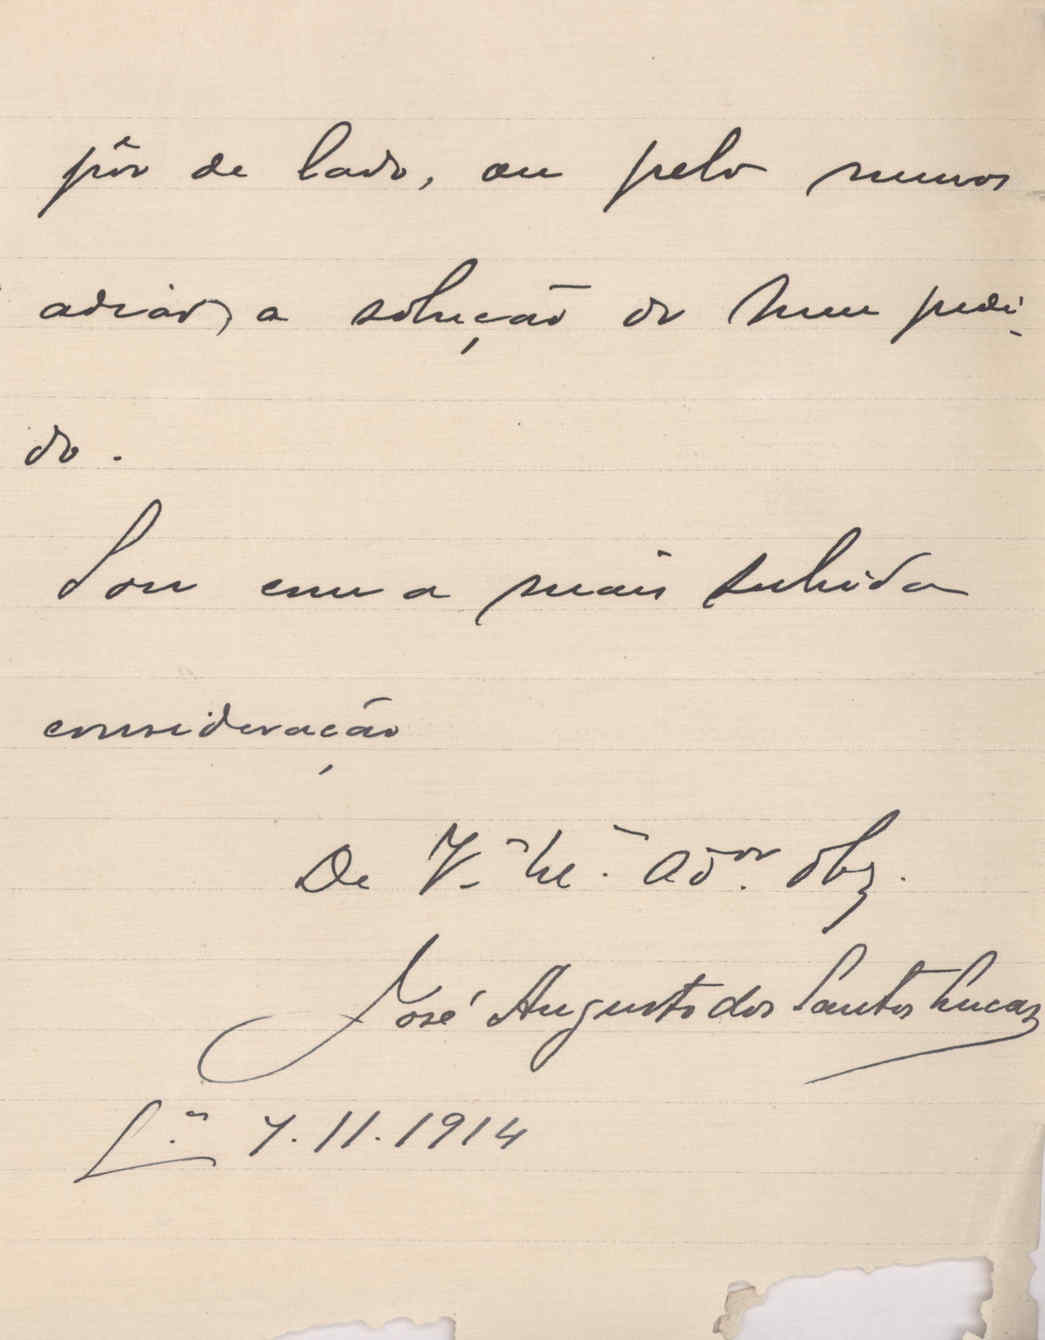 pôr de lado, ou pelo menos
adiar, a solução do meu pedi-
do.
Sou com a mais subida
consideração
De V.ª Ex.ª Ad.or Obg.
José Augusto dos Santos Lucas
L.ª 7.11.1914